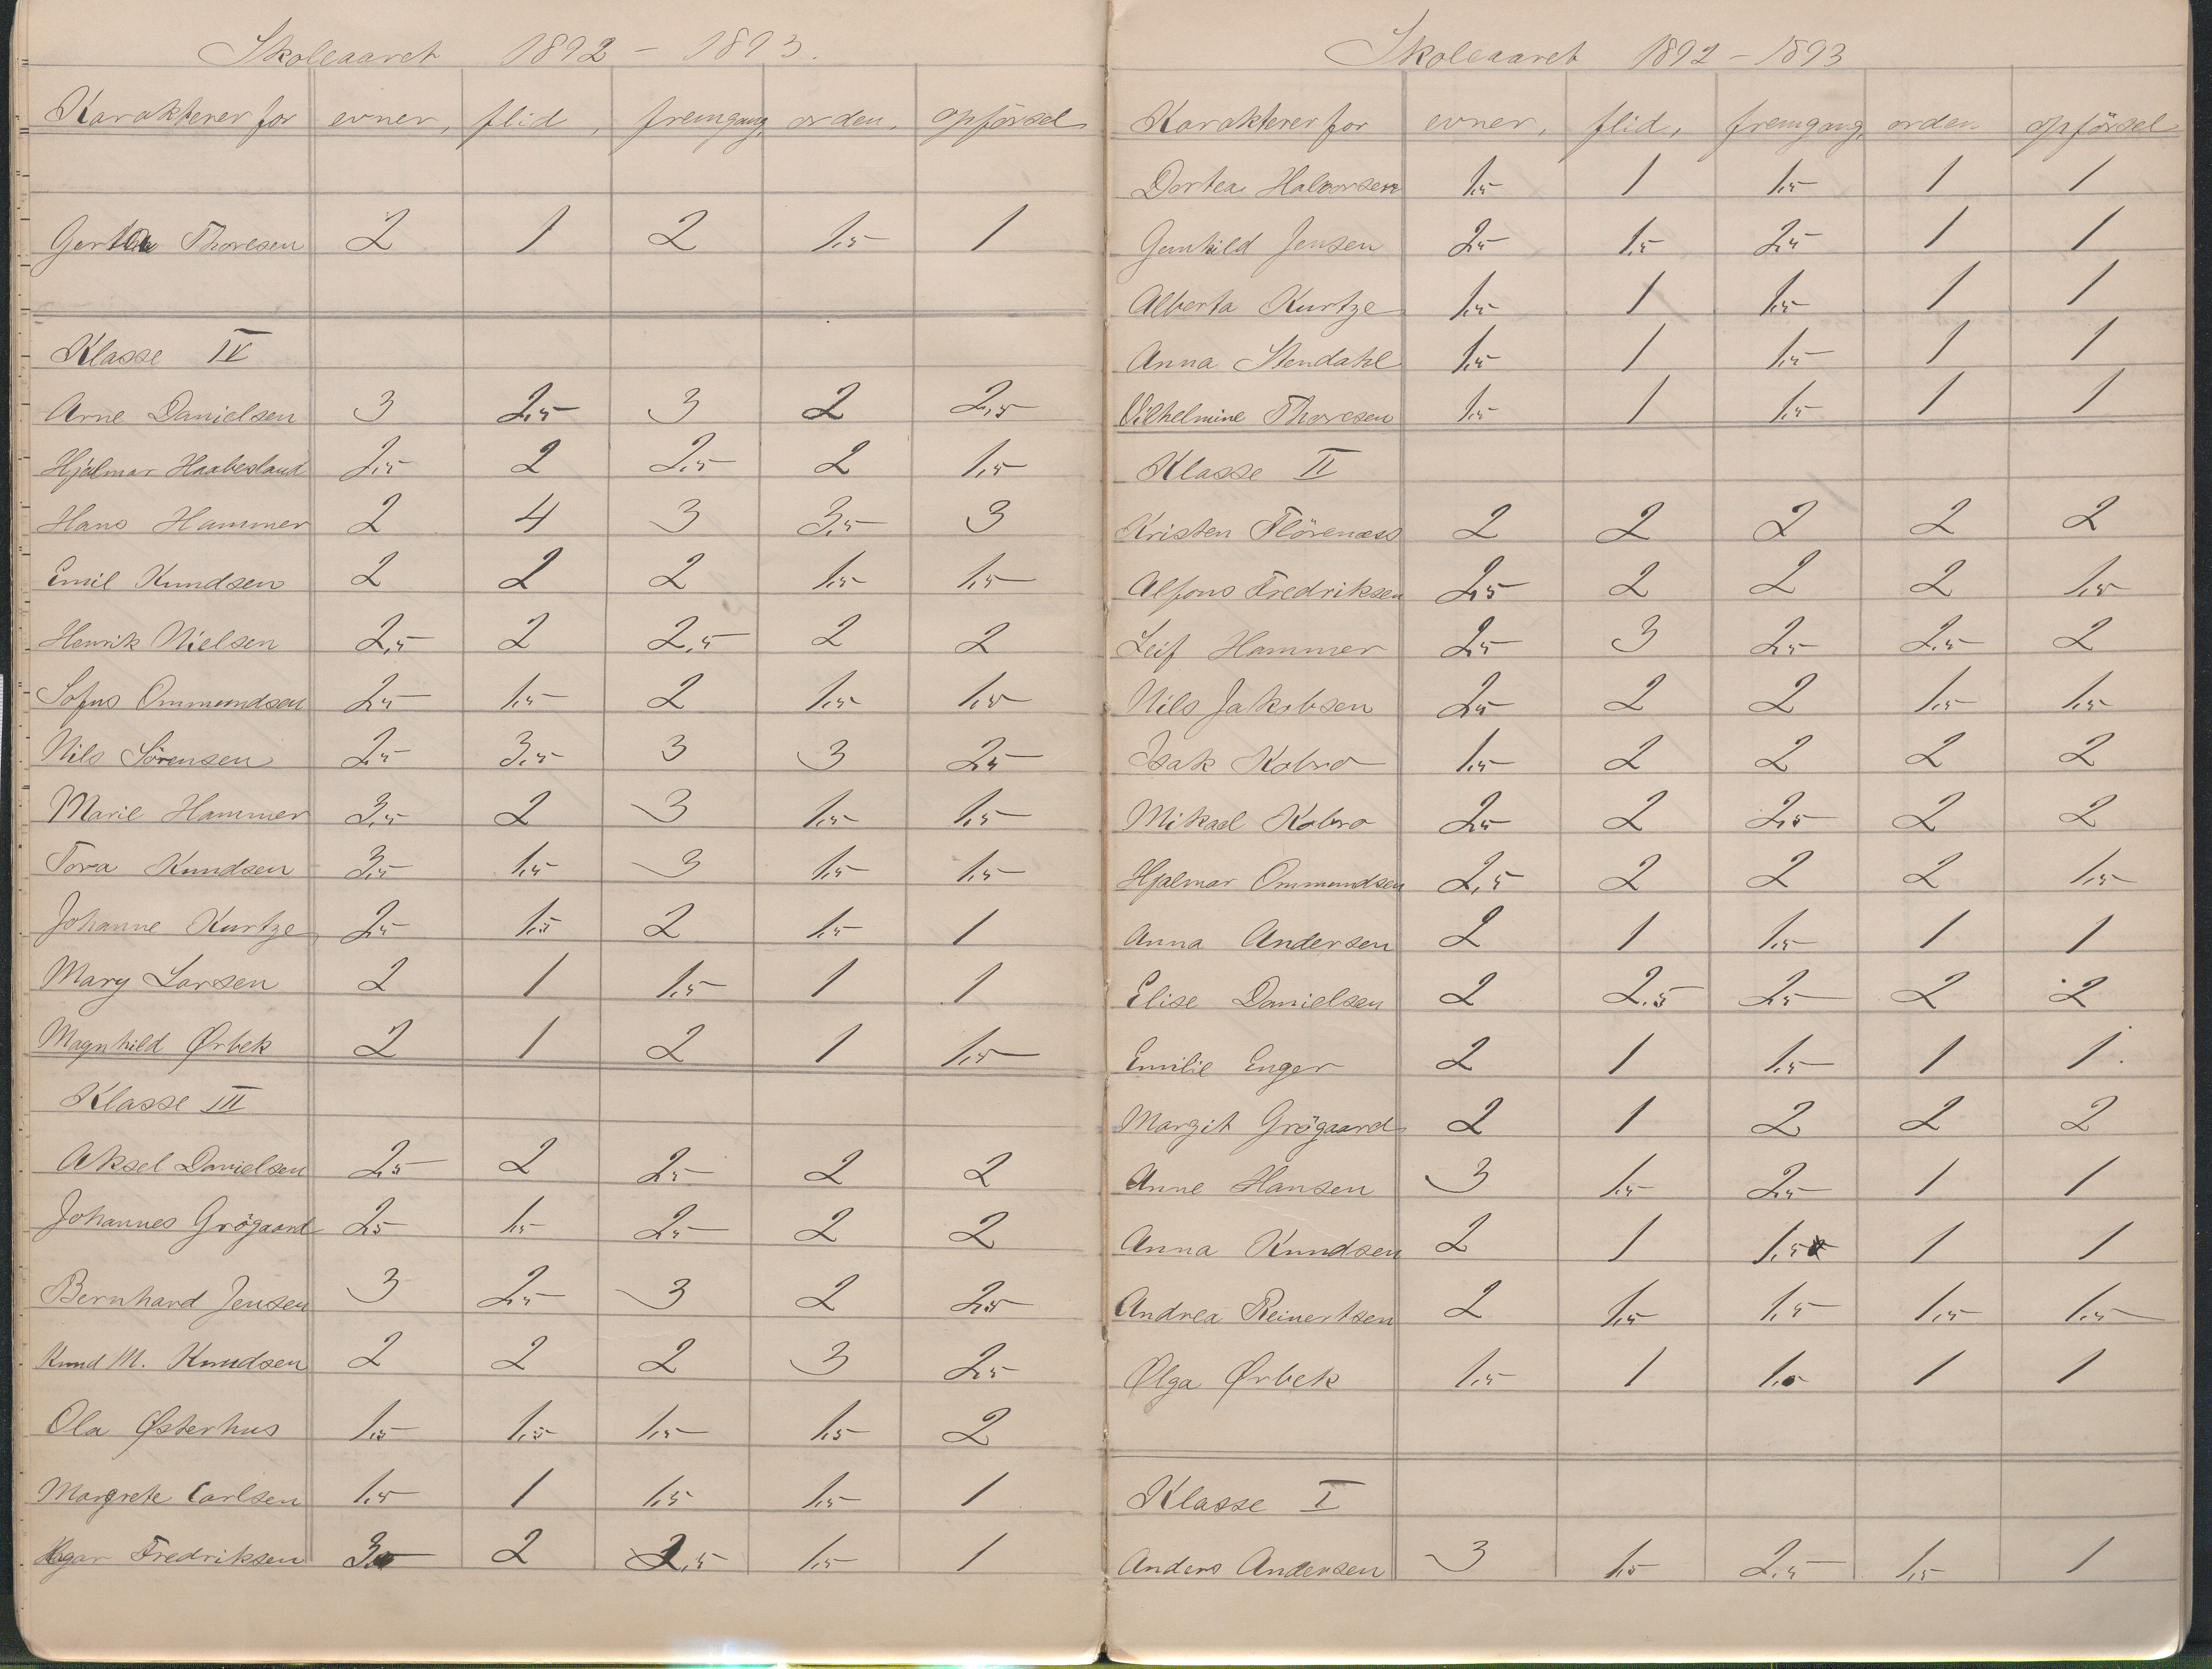 Skoleaaret 1892 – 1893.
Karakterer for evner, flid, fremgang, orden, opförsel
Thoresen 2 1 2 1,5 1
Klasse IV
Arne Danielsen 3 2,5 3 2 2,5
Hjalmar Haabesland 2,5 2 2,5 2 1,5
Hans Hammer 2 4 3 3,5 3
Emil Knudsen 2 2 2 1,5 1,5
Henrik Nielsen 2,5 2 2,5 2 2
Sofus Ommundsen 2,5 1,5 2 1,5 1,5
Nils Sörensen 2,5 3,5 3 3 2,5
Marie Hammer 3,5 2 3 1,5 1,5
Tora Knudsen 3,5 1,5 3 1,5 1,5
Johanne Kurtze 2,5 1,5 2 1,5 1
Mary Larsen 2 1 1,5 1 1
Magnhild Ørbek 2 1 2 1 1,5
Klasse III
Aksel Danielsen 2,5 2 2,5 2 2
Johannes Grögaard 2,5 1,5 2,5 2 2
Bernhard Jensen 3 2,5 3 2 2,5
Knud M. Knudsen 2 2 2 3 2,5
Ola Østerhus 1,5 1,5 1,5 1,5 2
Margrete Carlsen 1,5 1 1,5 1,5 1
Hagar Fredriksen 2 2,5 1,5 1
Skoleaaret 1892 – 1893
Karakterer for evner, flid, fremgang, orden opförsel
Dortea Halvorsen 1,5 1 1,5 1 1
Gunhild Jensen 2,5 1,5 2,5 1 1
Alberta Kurtze 1,5 1 1,5 1 1
Anna Stendahl 1,5 1 1,5 1 1
Vilhelmine Thoresen 1,5 1 1,5 1 1
Klasse II
Kristen Flörenæss 2 2 2 2 2
Alfons Fredriksen 2,5 2 2 2 1,5
Leif Hammer 2,5 3 2,5 2,5 2
Nils Jakobsen 2,5 2 2 1,5 1,5
Isak Kobro 1,5 2 2 2 2
Mikael Kobro 2,5 2 2,5 2 2
Hjalmar Ommundsen 2,5 2 2 2 1,5
Anna Andersen 2 1 1,5 1 1
Elise Danielsen 2 2,5 2,5 2 2
Emilie Enger 2 1 1,5 1 1
Margit Grögaard 2 1 2 2 2
Anne Hansen 3 1,5 2,5 1 1
Anna Knudsen 2 1 1,5 1 1
Andrea Reinertsen 2 1,5 1,5 1,5 1,5
Olga Ørbek 1,5 1 1,5 1 1
Klasse I
Anders Andersen 3 1,5 2,5 1,5 1